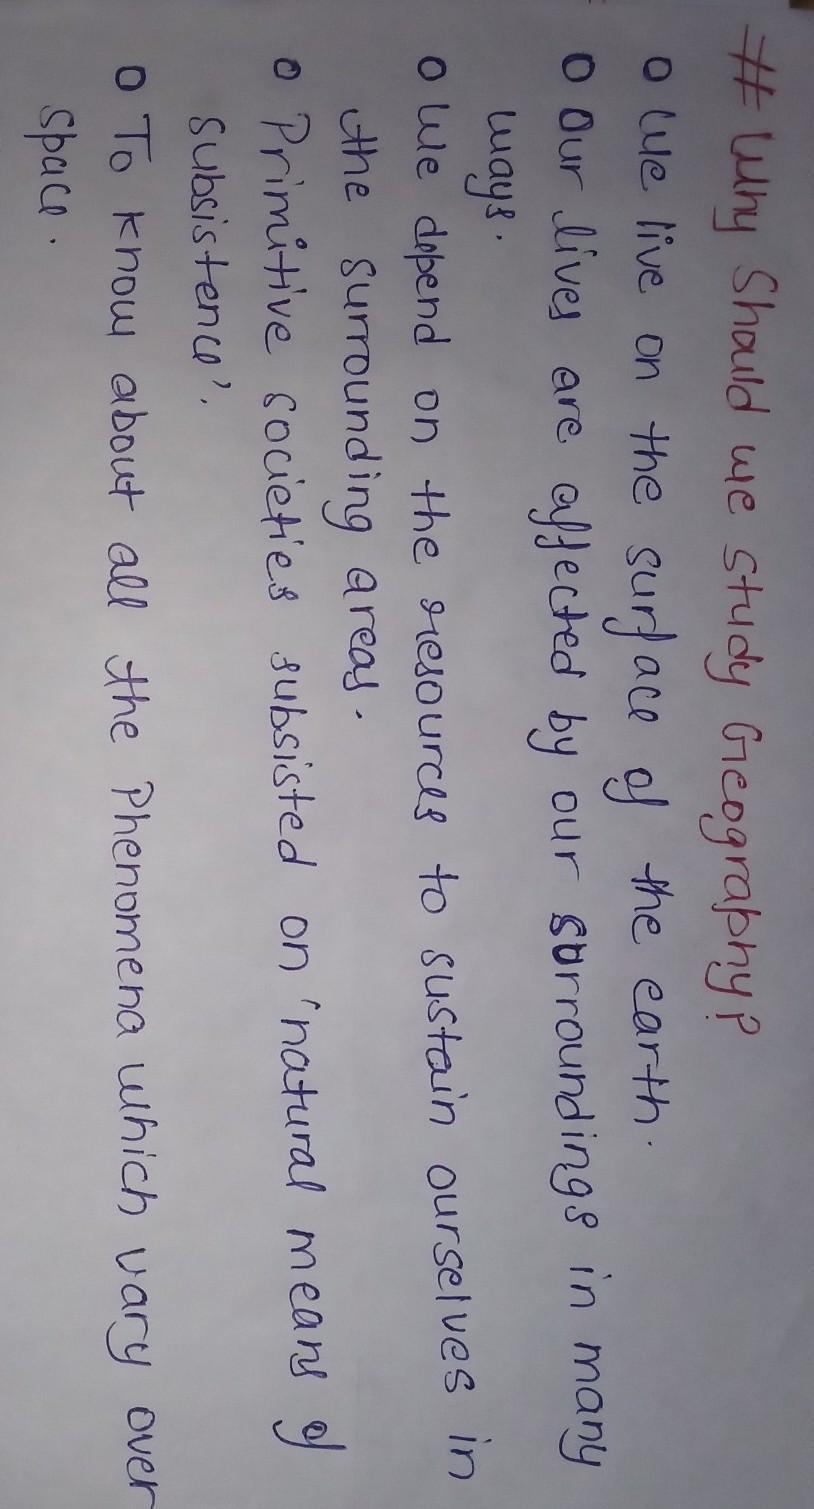 # Why Should we study Geography?
o We live on the surface of the earth.
o Our lives are affected by our surroundings in many
ways.
o We depend on the resources to sustain ourselves in
the surrounding areas.
o Primitive societies subsisted on 'natural means of
subsistence'.
o To know about all the Phenomena which vary over
space.